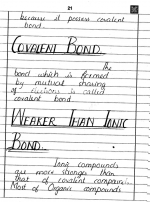 21
because it possess covalent
bond.
COVALENT BOND.
The
bond which is formed
by mutual sharing
of electrons is called
covalent bond.
WEAKER THAN IONIC
BOND.
Ionic compounds
are more stronger than
that of covalent compound.
Most of Organic compounds